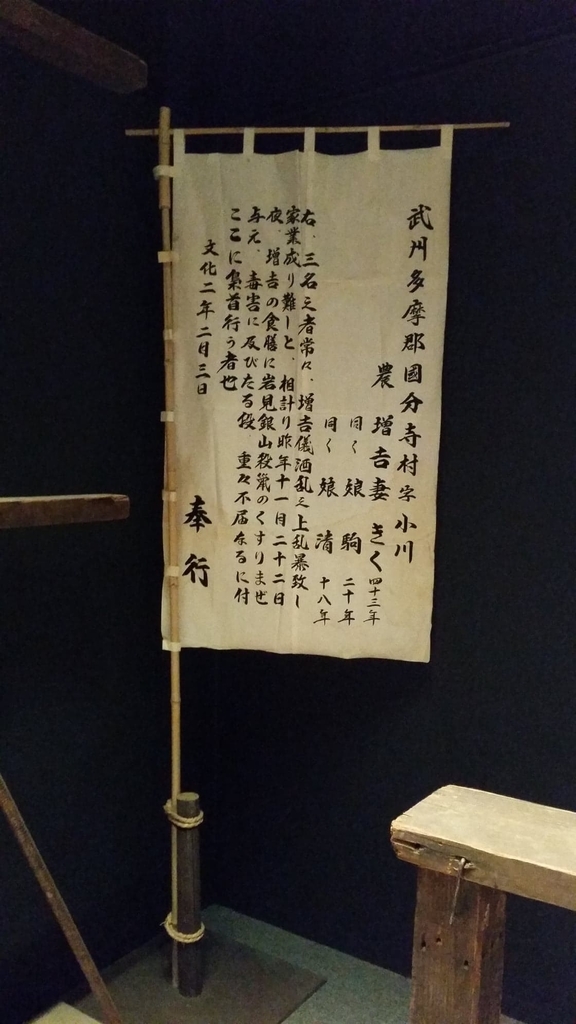 武州多摩郡國分寺村字小川
農 増吉妻 きく 四十三年
同く 娘 駒 二十年
同く 娘 清 十八年
右、三名之者常々、増吉儀酒乱之上乱暴致し
家業成り難しと、相計り昨年十一日二十二日
夜、増吉の食膳に岩見銀山殺鼠のくすりまぜ
与え、毒害に及びたる段、重々不届なるに付
ここに梟首行う者也
文化二年二月三日
奉行